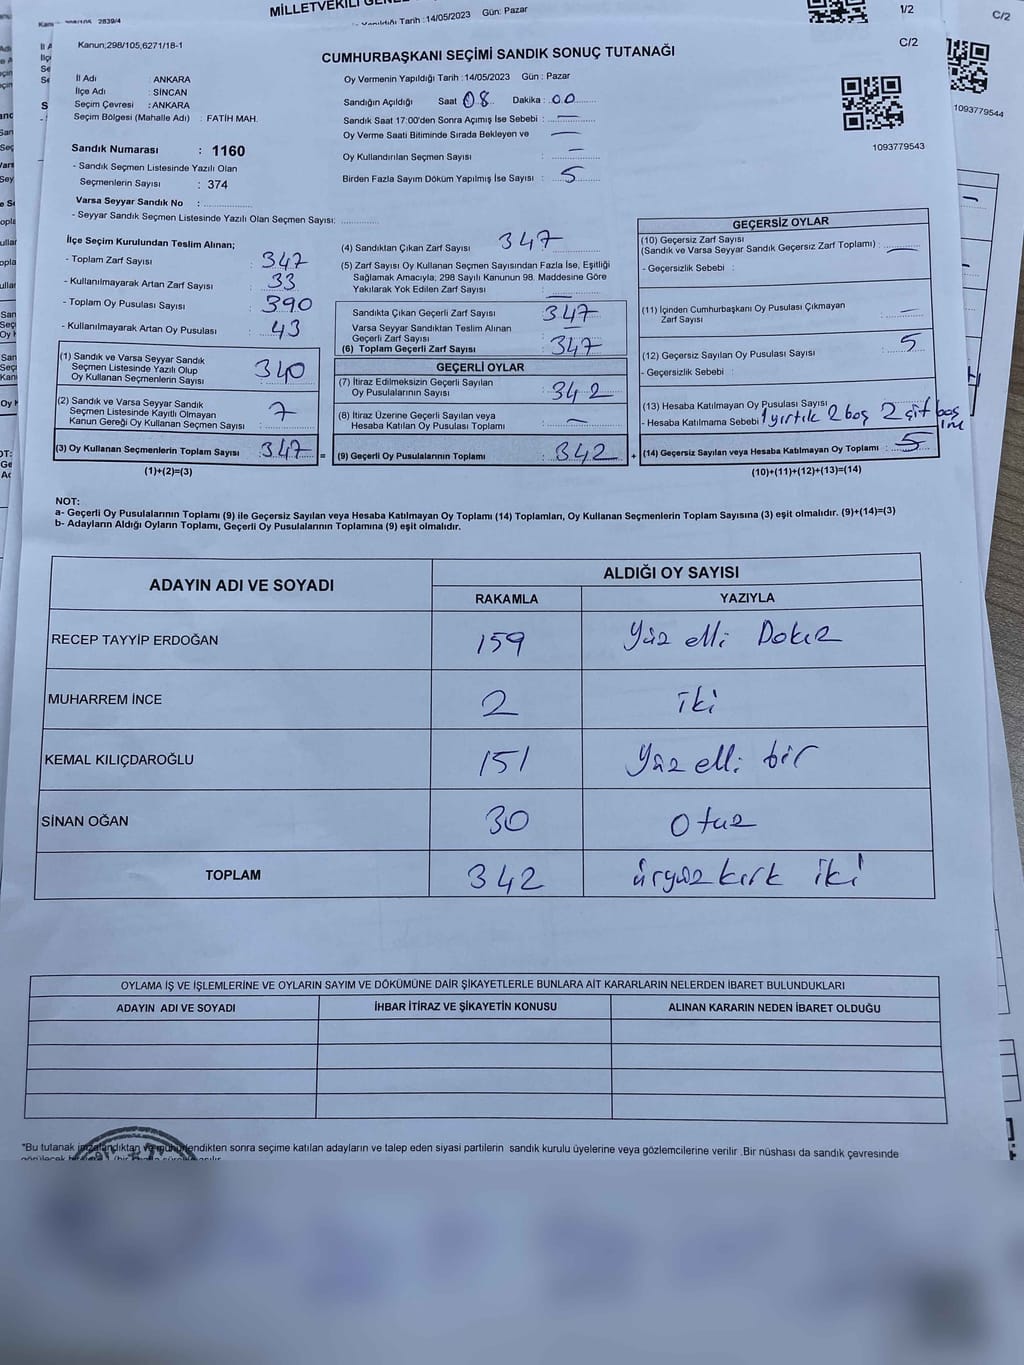 MİLLETVEKİLİ GENE
Tarih :14/05/2023 Gün: Pazar
1/2
C/2
Kanun;298/105,6271/18-1
C/2
CUMHURBAŞKANI SEÇİMİ SANDIK SONUÇ TUTANAĞI
İl Adı : ANKARA
İlçe Adı : SİNCAN
Seçim Çevresi : ANKARA
Seçim Bölgesi (Mahalle Adı) : FATİH MAH.
Oy Vermenin Yapıldığı Tarih :14/05/2023 Gün : Pazar
Sandığın Açıldığı Saat 08 Dakika : 00
Sandık Saat 17:00'den Sonra Açımış İse Sebebi : —
Oy Verme Saati Bitiminde Sırada Bekleyen ve —
Oy Kullandırılan Seçmen Sayısı : —
Birden Fazla Sayım Döküm Yapılmış İse Sayısı : 5
1093779543
1093779544
Sandık Numarası : 1160
- Sandık Seçmen Listesinde Yazılı Olan
Seçmenlerin Sayısı : 374
Varsa Seyyar Sandık No :
- Seyyar Sandık Seçmen Listesinde Yazılı Olan Seçmen Sayısı:
İlçe Seçim Kurulundan Teslim Alınan;
- Toplam Zarf Sayısı : 347
- Kullanılmayarak Artan Zarf Sayısı : 33
- Toplam Oy Pusulası Sayısı : 390
- Kullanılmayarak Artan Oy Pusulası : 43
(1) Sandık ve Varsa Seyyar Sandık
Seçmen Listesinde Yazılı Olup
Oy Kullanan Seçmenlerin Sayısı : 340
(2) Sandık ve Varsa Seyyar Sandık
Seçmen Listesinde Kayıtlı Olmayan
Kanun Gereği Oy Kullanan Seçmen Sayısı : 7
(3) Oy Kullanan Seçmenlerin Toplam Sayısı : 347
(1)+(2)=(3)
(4) Sandıktan Çıkan Zarf Sayısı : 347
(5) Zarf Sayısı Oy Kullanan Seçmen Sayısından Fazla İse, Eşitliği
Sağlamak Amacıyla; 298 Sayılı Kanunun 98. Maddesine Göre
Yakılarak Yok Edilen Zarf Sayısı : —
Sandıkta Çıkan Geçerli Zarf Sayısı : 347
Varsa Seyyar Sandıktan Teslim Alınan
Geçerli Zarf Sayısı : —
(6) Toplam Geçerli Zarf Sayısı : 347
GEÇERLİ OYLAR
(7) İtiraz Edilmeksizin Geçerli Sayılan
Oy Pusulalarının Sayısı : 342
(8) İtiraz Üzerine Geçerli Sayılan veya
Hesaba Katılan Oy Pusulası Toplamı : —
= (9) Geçerli Oy Pusulalarının Toplamı : 342
GEÇERSİZ OYLAR
(10) Geçersiz Zarf Sayısı
(Sandık ve Varsa Seyyar Sandık Geçersiz Zarf Toplamı) : —
- Geçersizlik Sebebi :
(11) İçinden Cumhurbaşkanı Oy Pusulası Çıkmayan
Zarf Sayısı : —
(12) Geçersiz Sayılan Oy Pusulası Sayısı : 5
- Geçersizlik Sebebi :
(13) Hesaba Katılmayan Oy Pusulası Sayısı
- Hesaba Katılmama Sebebi 1 yırtık 2 boş 2 çift
+ (14) Geçersiz Sayılan veya Hesaba Katılmayan Oy Toplamı : 5
(10)+(11)+(12)+(13)=(14)
NOT:
a- Geçerli Oy Pusulalarının Toplamı (9) ile Geçersiz Sayılan veya Hesaba Katılmayan Oy Toplamı (14) Toplamları, Oy Kullanan Seçmenlerin Toplam Sayısına (3) eşit olmalıdır. (9)+(14)=(3)
b- Adayların Aldığı Oyların Toplamı, Geçerli Oy Pusulalarının Toplamına (9) eşit olmalıdır.
ADAYIN ADI VE SOYADI ALDIĞI OY SAYISI
RAKAMLA YAZIYLA
RECEP TAYYİP ERDOĞAN 159 Yüz elli Dokuz
MUHARREM İNCE 2 iki
KEMAL KILIÇDAROĞLU 151 Yüz elli bir
SİNAN OĞAN 30 Otuz
TOPLAM 342 üçyüz kırk iki
OYLAMA İŞ VE İŞLEMLERİNE VE OYLARIN SAYIM VE DÖKÜMÜNE DAİR ŞİKAYETLERLE BUNLARA AİT KARARLARIN NELERDEN İBARET BULUNDUKLARI
ADAYIN ADI VE SOYADI İHBAR İTİRAZ VE ŞİKAYETİN KONUSU ALINAN KARARIN NEDEN İBARET OLDUĞU
"Bu tutanak imzalandıktan ve mühürlendikten sonra seçime katılan adayların ve talep eden siyasi partilerin sandık kurulu üyelerine veya gözlemcilerine verilir .Bir nüshası da sandık çevresinde